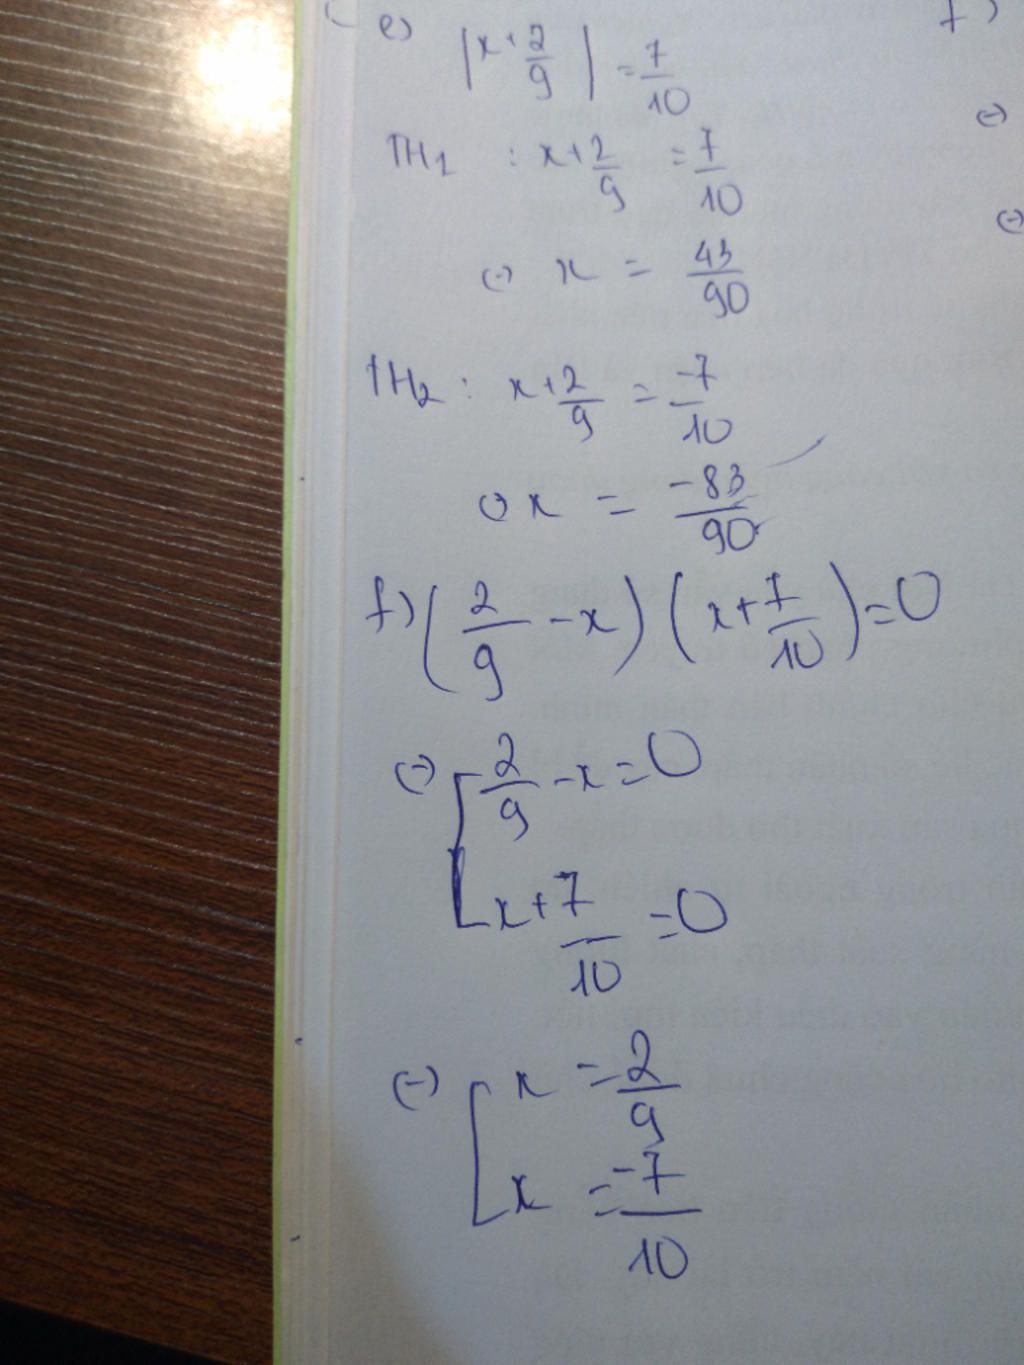 e) |x+2/9| = 7/10
TH1 : x+2/9 = 7/10
(-) x = 43/90
TH2 : x+2/9 = -7/10
(-) x = -83/90
f) (2/9 - x) (x+7/10) = 0
(-) [ 2/9 - x = 0
x+7/10 = 0
(-) [ x = 2/9
x = -7/10
f)
(-)
(-)